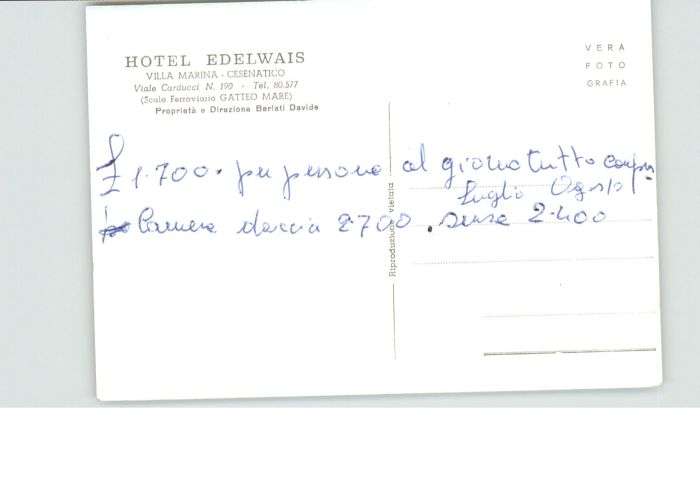 HOTEL EDELWAIS
VILLA MARINA - CESENATICO
Viale Carducci N. 190 - Tel. 80.577
(Scalo Ferroviario GATTEO MARE)
Proprietà e Direzione Berlati Davide
VERA
FOTO
GRAFIA
£ 1.700. per persona al giorno tutto compr
Luglio Agosto
Camera doccia 2.700. senza 2.400
Riproduzione vietata